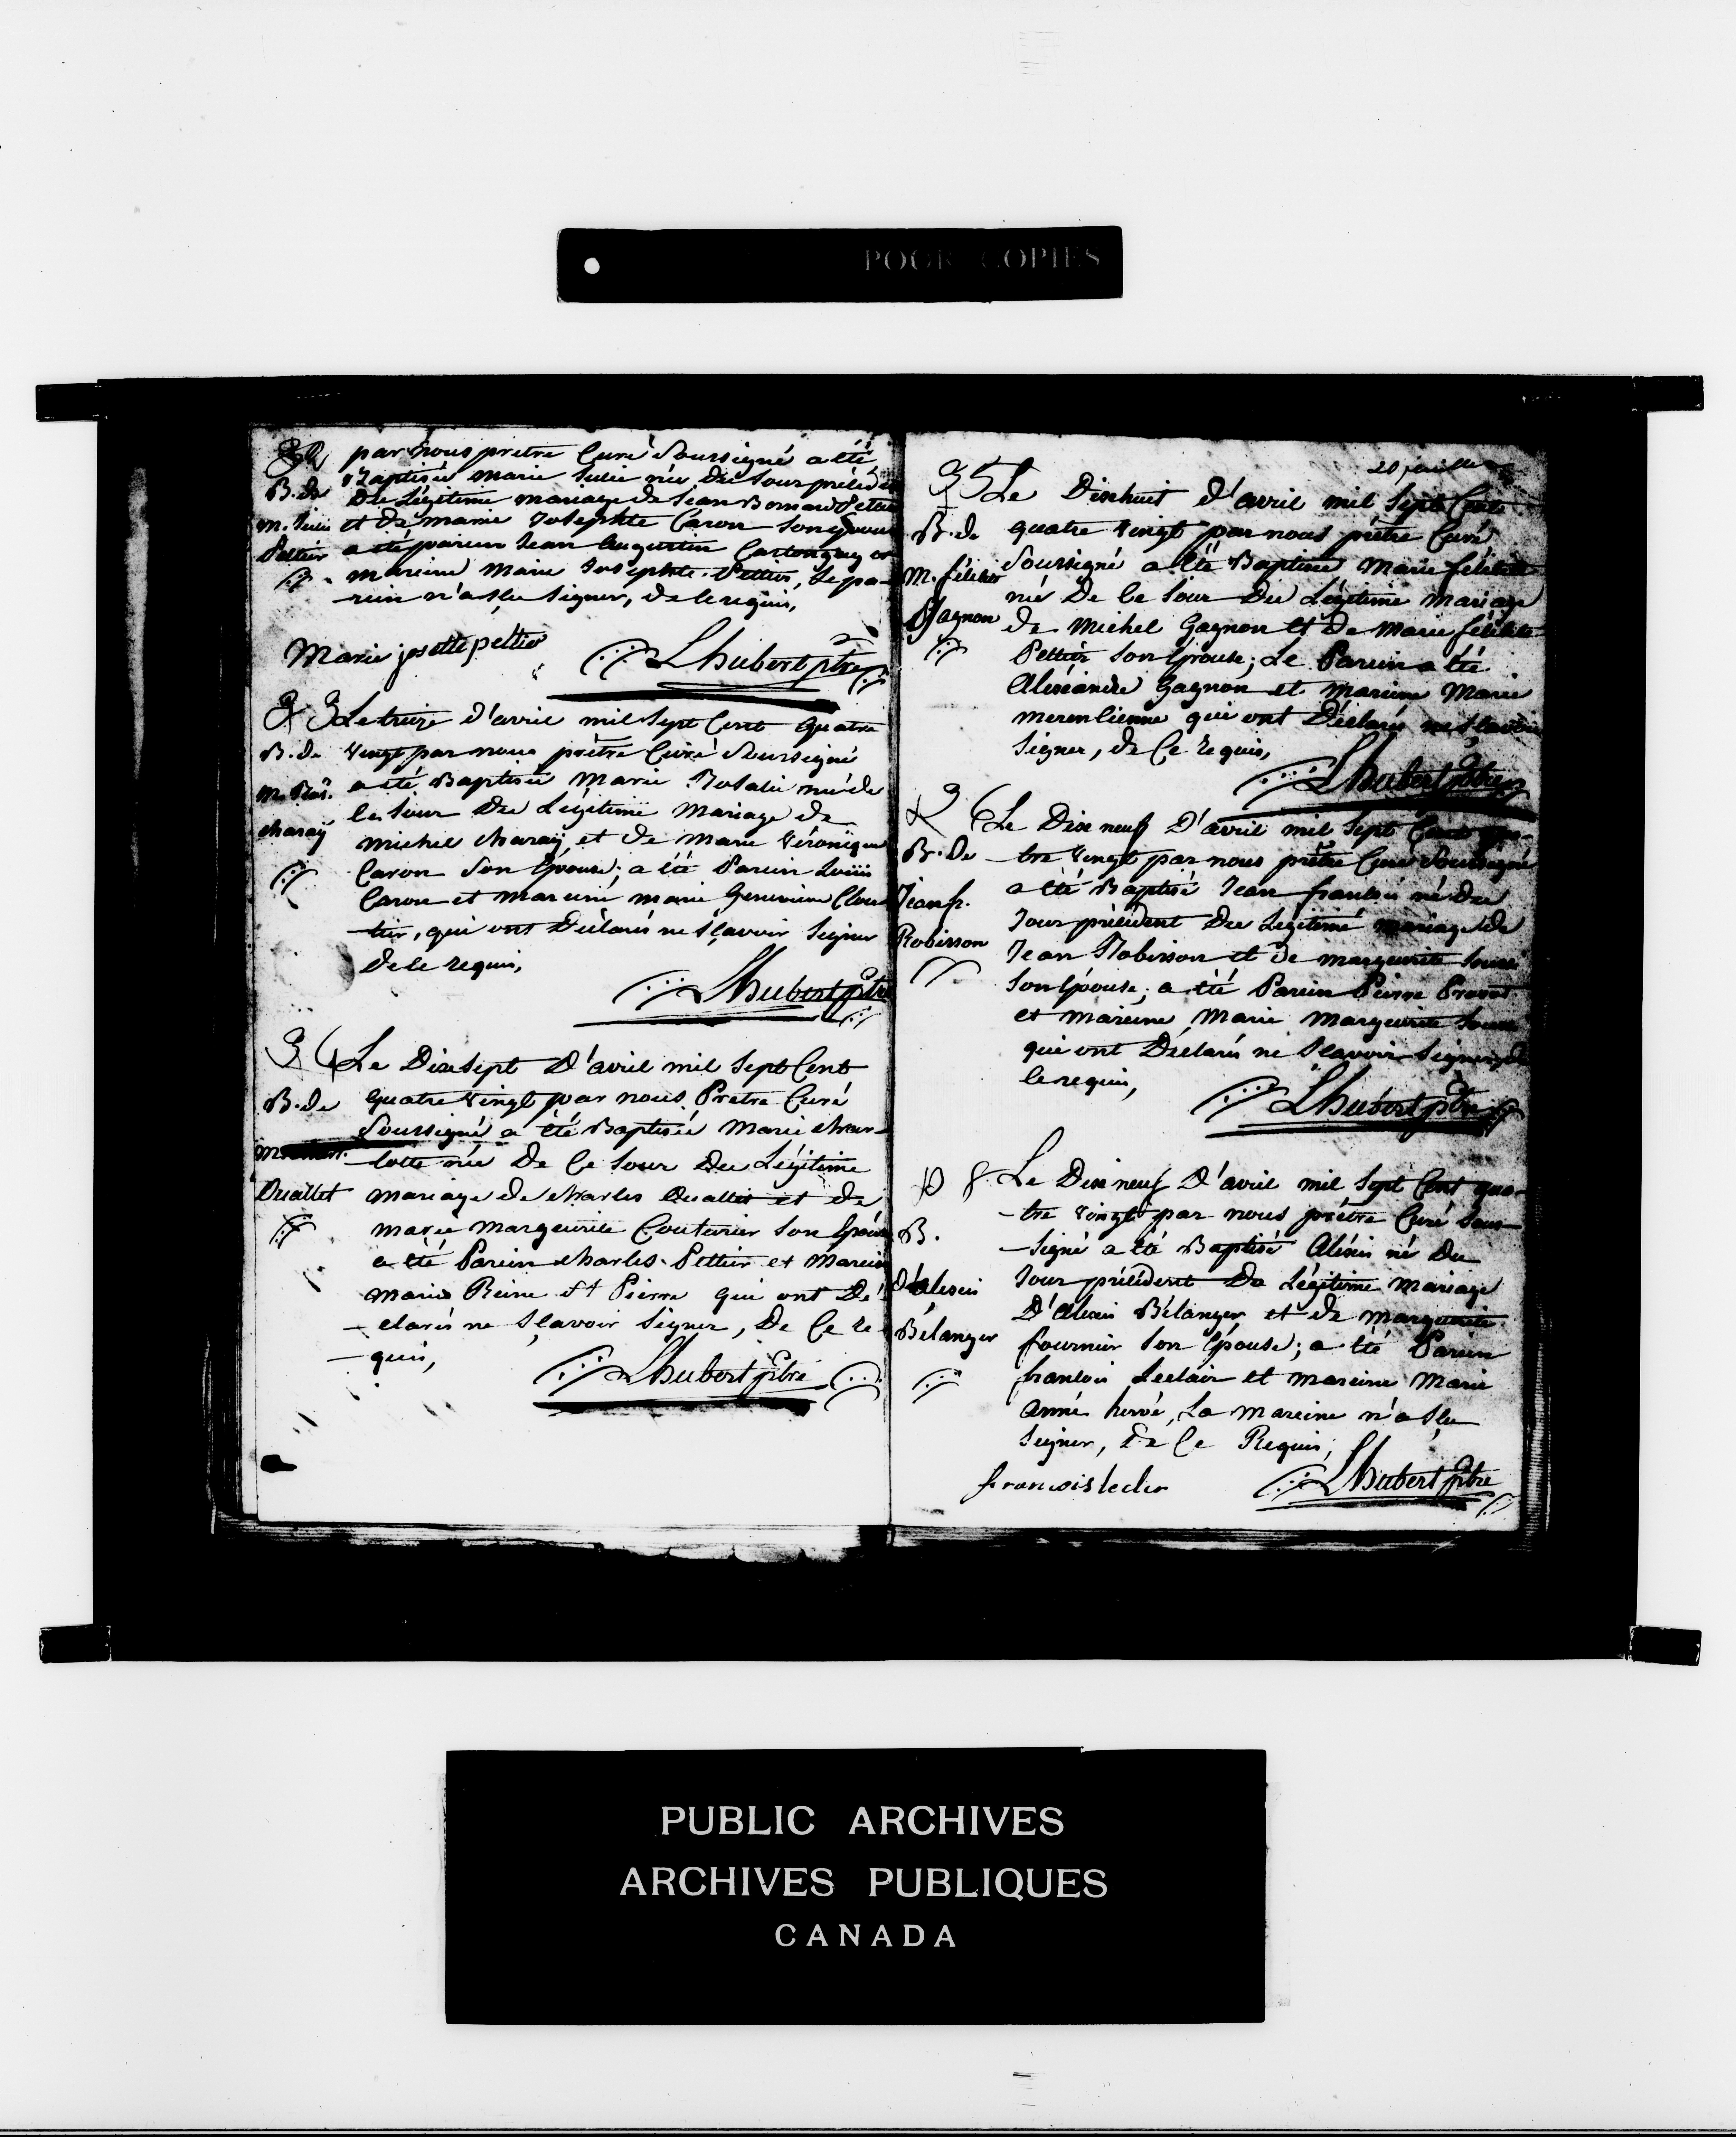 POOR COPIES
32 par nous pretre Curé Soussigné a été
Baptisée marie Julie née Du Jour précéde
B. de Du Légitime mariage de Jean Bernard Pettier
m. Julie et de marie Josephte Caron son epouse
Pettier a été parein Jean Augustin Castonguay et
mareine Marie Josephte Pettier, Le pa-
rein n'a Scu Signer, de ce requis,
Marie josette peltié Lhubert ptre
33 Le treize d'avril mil Sept Cent quatre
B. de vingt par nous prètre Curé Soussigné
m. Ros. a été Baptisée Marie Rosalie née de
ce Jour Du Légitime Mariage de
charaÿ michel charaÿ, et de Marie Véronique
Caron Son Epouse; a été Parein Louis
Caron et mareine marie Genevieve Clou-
tier, qui ont Déclarés ne Sçavoir Signer
de ce requis,
Lhubert ptre
34 Le Dix Sept D'avril mil Sept Cent
B. de quatre vingt par nous Pretre Curé
Soussigné a été Baptisée Marie char-
lotte née De Ce Jour Du Légitime
Ouallet mariage de charles Ouallet et de
marie margeurite Couturier Son Epouse
a été Parein charles Pettier et Mareine
marie Reine St Pierre qui ont Dé-
clarés ne Sçavoir Signer, De Ce re-
quis,
Lhubert Ptre
20 feuille
35 Le Dixhuit D'avril mil Sept Cent
B. de quatre vingt par nous prêtre Curé
m. félicité Soussigné a été Baptisée Marie félicité
née De Ce Jour Du Légitime Mariage
Gagnon de Michel Gagnon et De Marie félicité
Pettier Son Epouse; Le Parein a été
Alexandre Gagnon et Mareine Marie
qui ont Déclarés ne Sçavoir
Signer, de Ce requis,
Lhubert Ptre
36 Le Dix neuf D'avril mil Sept Cent qua-
B. De -tre vingt par nous prêtre Curé Soussigné
Jean fr. a été Baptisé Jean francois né Du
Jour précédent Du Légitime mariage de
Robisson Jean Robisson et de margeurite
Son Epouse; a été Parein Pierre
et mareine Marie Margeurite
qui ont Declarés ne Sçavoir Signer, de
ce requis,
Lhubert ptre
Le Dix neuf D'avril mil Sept Cent qua-
-tre vingt par nous prêtre Curé Sous-
B. -signé a été Baptisé Alexis né Du
D'alexis Jour précédent Du Légitime Mariage
D'Alexis Bélanger et de margeurite
Bélanger fournier Son Epouse; a été Parein
francois Leclair et mareine Marie
Anne hervé, La Mareine n'a Sçu
Signer, De Ce Requis,
francois lecler Lhubert Ptre
PUBLIC ARCHIVES
ARCHIVES PUBLIQUES
CANADA